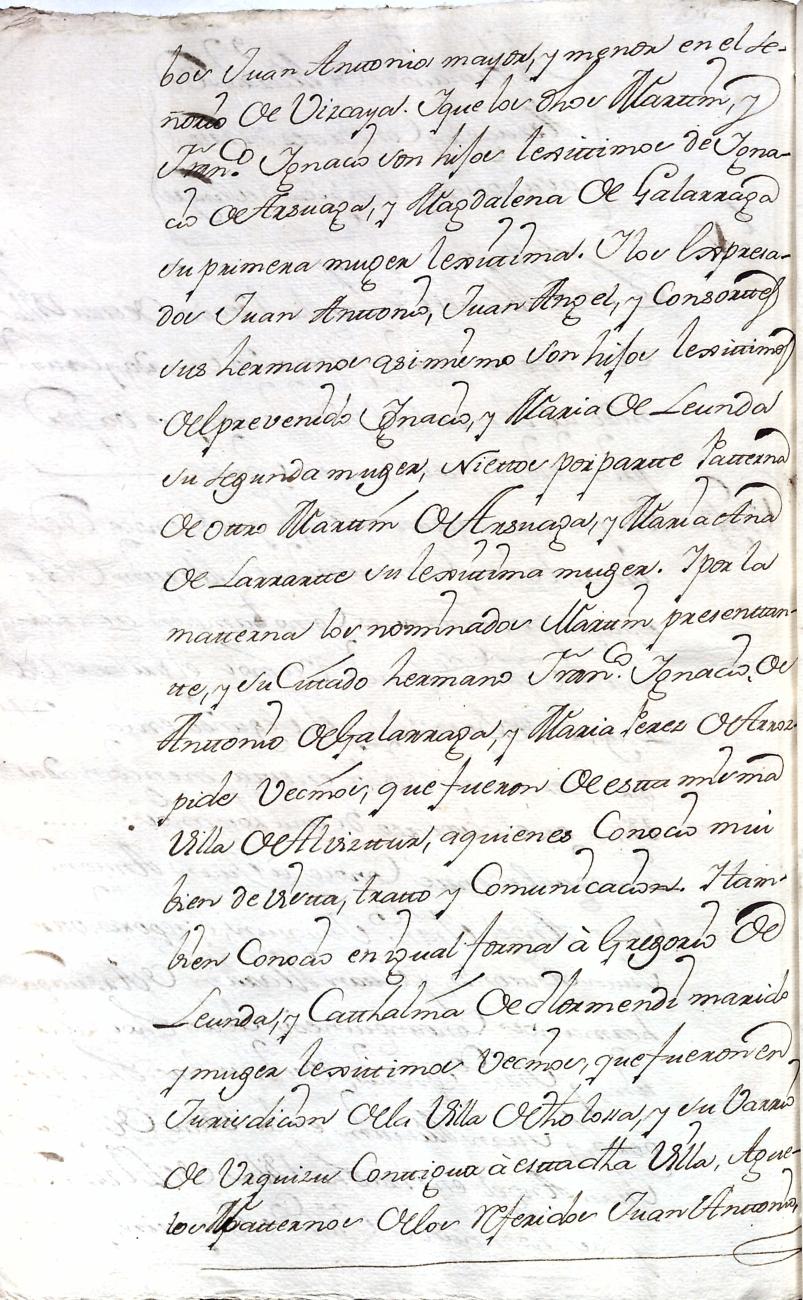 bos Juan Antonio mayor, y menor en el se-
ñorio de Vizcaya. Y que los dhos Martin, y
Fran.co Ygnacio son hijos lexittimos de Ygna-
cio de Arsuaga, y Magdalena de Galarraga
su primera muger lexittima. Y los expresa-
dos Juan Anttonio, Juan Angel, y Consorttes
sus hermanos asi mismo son hijos lexittimos
del prevenido Ygnacio, y Maria de Leunda
su segunda muger, Niettos por partte Patterna
de ottro Marttin de Arsuaga, y Maria Ana
de Larrartte su lexittima muger. Y por la
matterna los nominados Marttin presenttan-
tte, y su Cittado hermano Fran.co Ygnacio, de
Anttonio de Galarraga, y Maria Perez de Arroz-
pide Vecinos, que fueron de estta misma
Villa de Alvizttur, a quienes Conocio mui
bien de vistta, tratto y Comunicacion. Y tam-
bien Conocio en igual forma à Gregorio de
Leunda, y Catthalina de Olormendi marido
y muger lexittimos Vecinos, que fueron en
Jurisdicion de la Villa de Tholossa, y su Varrio
de Urquizu Conttigua à estta dha Villa, Ague-
los Matternos de los referidos Juan Anttonio,